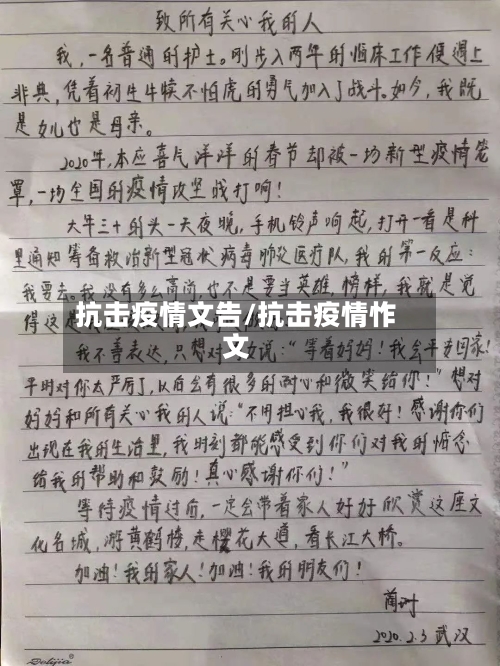 致所有关心我的人
我,一名普通的护士。刚步入两年的临床工作便遇上
非典,凭着初生牛犊不怕虎的勇气加入了战斗。如今,我既
是女儿也是母亲。
2020年,本应喜气洋洋的春节却被一场新型疫情笼
罩,一场全国的疫情攻坚战打响!
大年三十的头一天夜晚,手机铃声响起,打开一看是科
里通知筹备救治新型冠状病毒肺炎医疗队,我的第一反应:
我要去。我没有多么高尚,也不是要当英雄,榜样,我就是觉
得这
抗击疫情文告/抗击疫情作
文
我不善表达,只想对 说:“等着妈妈!我会平安回家!
平时对你太严厉了,以后会有很多的耐心和微笑给你!”想对
妈妈和所有关心我的人说:“不用担心我,我很好!感谢你们
出现在我的生活里,我时刻都能感受到你们对我的惦念
给我的帮助和鼓励!真心感谢你们!”
等待疫情过后,一定会带着家人好好欣赏这座文
化名城,游黄鹤楼,走樱花大道,看长江大桥。
加油!我的家人!加油!我的朋友们!
2020.2.3 武汉